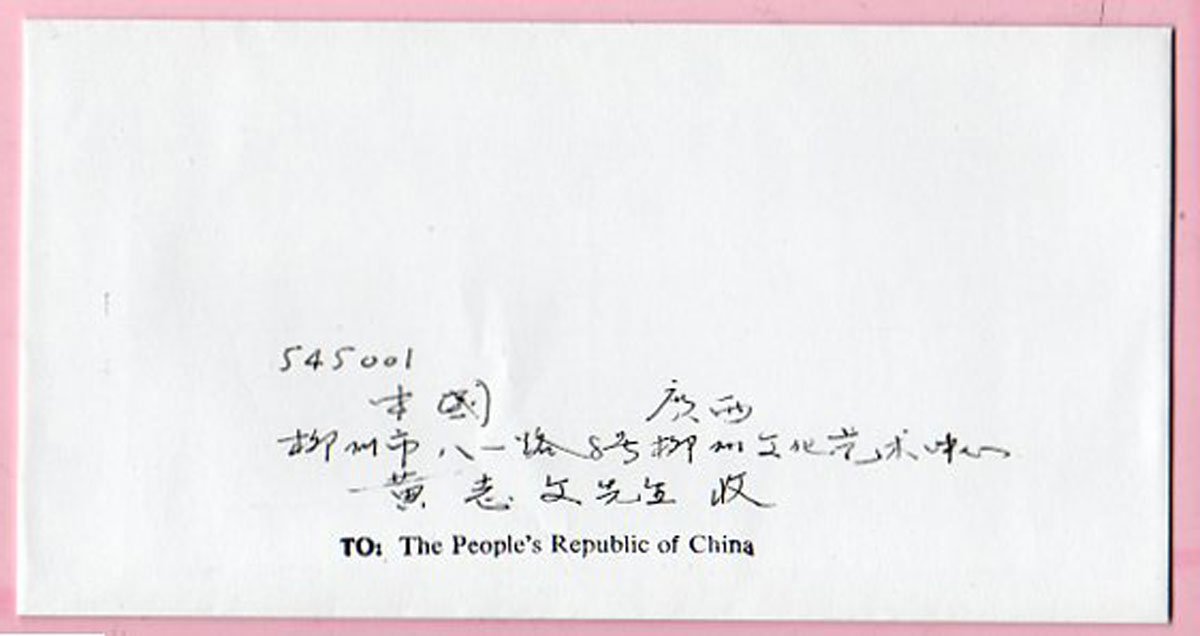 545001
中國 廣西
柳州市八一路8号柳州文化艺术中心
黄志文先生 收
TO: The People's Republic of China